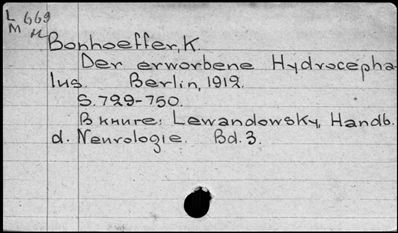 L 669
M
Bonhoeffer, K.
Der erworbene Hydrocepha-
lus. Berlin, 1912.
S. 729-750.
В книге: Lewandowsky, Handb.
d. Neurologie. Bd. 3.